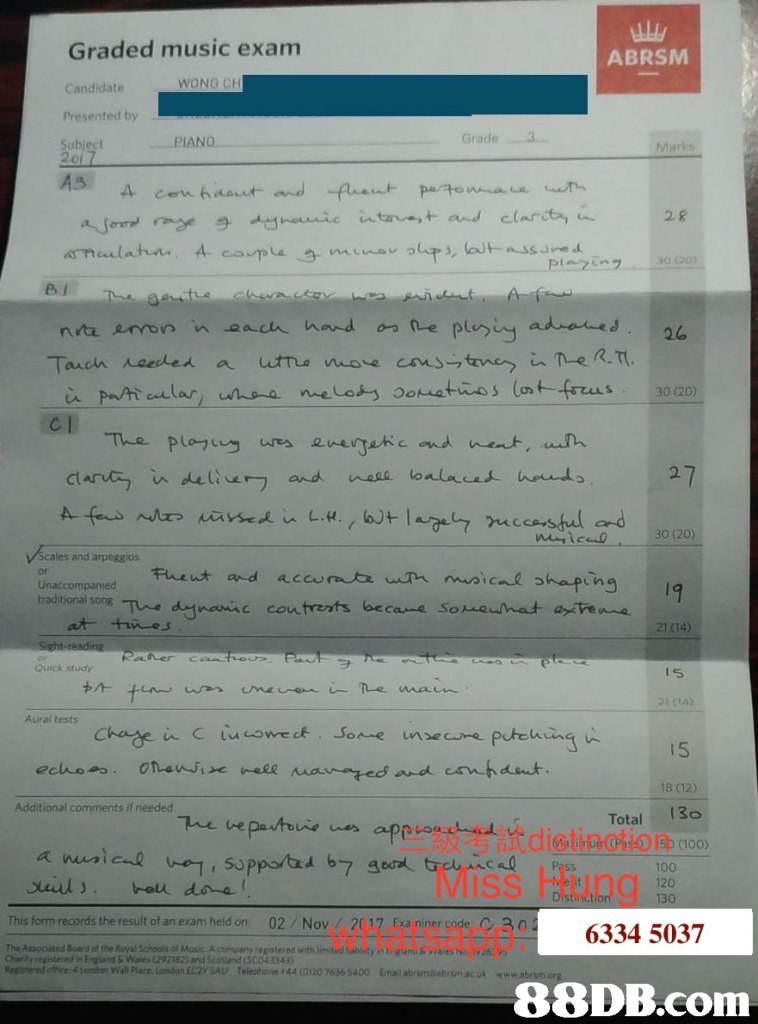 Graded music exam
ABRSM
Candidate WONG CH
Presented by
Subject PIANO Grade 3 Marks
2017
A3 A confident and fluent performance with
a good range of dynamic interest and clarity in 28
articulation. A couple of minor slips, but assured
playing 30 (20)
B1 The gentle character was evident. A few
note errors in each hand as the playing advanced. 26
Touch needed a little more consistency in the R.H.
in particular, where melody sometimes lost focus. 30 (20)
C1 The playing was energetic and neat, with
clarity in delivery and well balanced hands. 27
A few notes missed in L.H., but largely successful and
musical. 30 (20)
✓Scales and arpeggios
or
Unaccompanied
traditional song
Fluent and accurate with musical shaping 19
The dynamic contrasts became somewhat extreme
at times. 21 (14)
Sight-reading
or
Quick study
Rather cautious. Part of the outline was in place
but flow was uneven in the main. 15
21 (14)
Aural tests
Change in C incorrect. Some insecure pitching in 15
echoes. Otherwise well managed and confident.
18 (12)
Additional comments if needed
Total 130
The repertoire was approached in
Maximum (Pass) 150 (100)
a musical way, supported by good technical
Pass 100
Merit 120
skills. Well done!
Distinction 130
三級考試distinction
Miss Hung
whatsapp:
6334 5037
This form records the result of an exam held on: 02 / Nov / 2017 Examiner code: C 302
The Associated Board of the Royal Schools of Music. A company registered with limited liability in England & Wales No
Charity registered in England & Wales (292182) and Scotland (SC043343)
Registered office: 4 London Wall Place, London EC2Y 5AU Telephone +44 (0)20 7636 5400 Email abrsm@abrsm.ac.uk www.abrsm.org
88DB.com